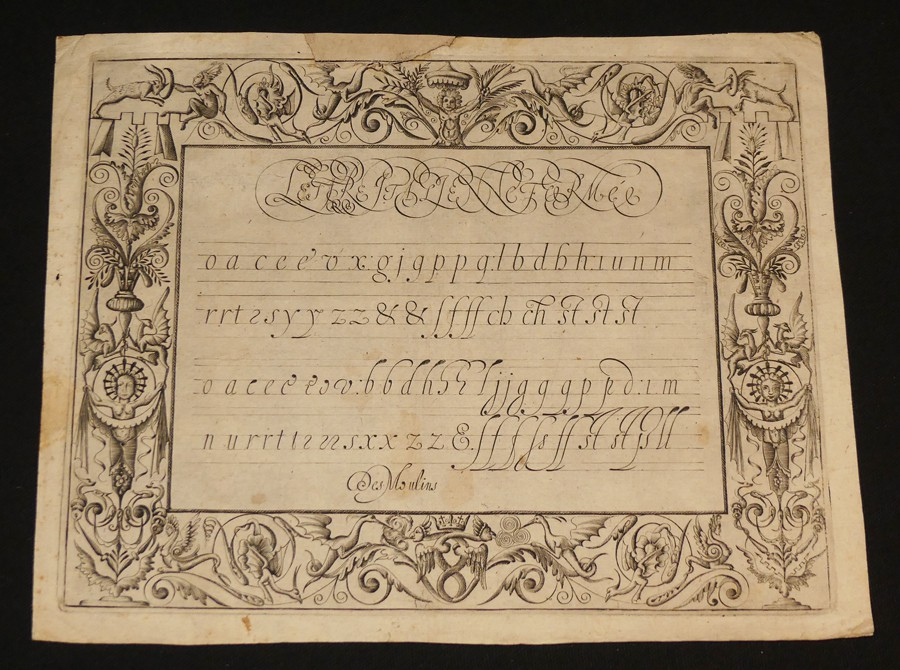 LETTRE ITALIENNE FORMÉE
o a c e e é v x : g j g q p p q : l b d b h : ı u n m
r r t ı s ſ y y z z & & ſ ſ f ſſ ch ch ſt ſt ſt
o a c e e é e o v : b b d h h h l j j g g g q p p d : ı m
n u r r t t ı s s s x x z z & . ſ ſ f ſ ſs ſſ ſt ſt ſs ll
Des Moulins